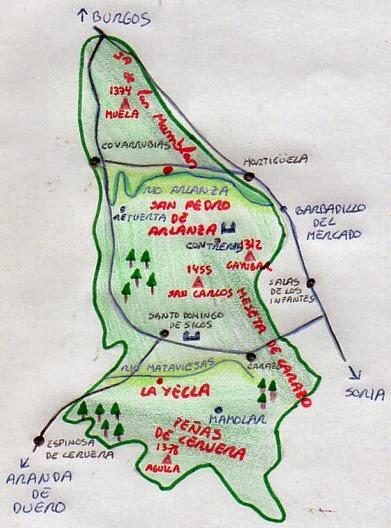 BURGOS
SA DE
las Mamblas
1374
MUELA
COVARRUBIAS
HORTIGÜELA
RIO ARLANZA
SAN PEDRO
DE
ARLANZA
RETUERTA
BARBADILLO
DEL
MERCADO
CONTRERAS
1312
GAYUBAR
1455
SAN CARLOS
SALAS
DE LOS
INFANTES
MESETA DE CARAZO
SANTO DOMINGO
DE SILOS
CARAZO
RIO MATAVIEJAS
LA YECLA
SORIA
MAMOLAR
PEÑAS
DE CERVERA
1376
AGUILA
ESPINOSA
DE CERVERA
ARANDA
DE
DUERO